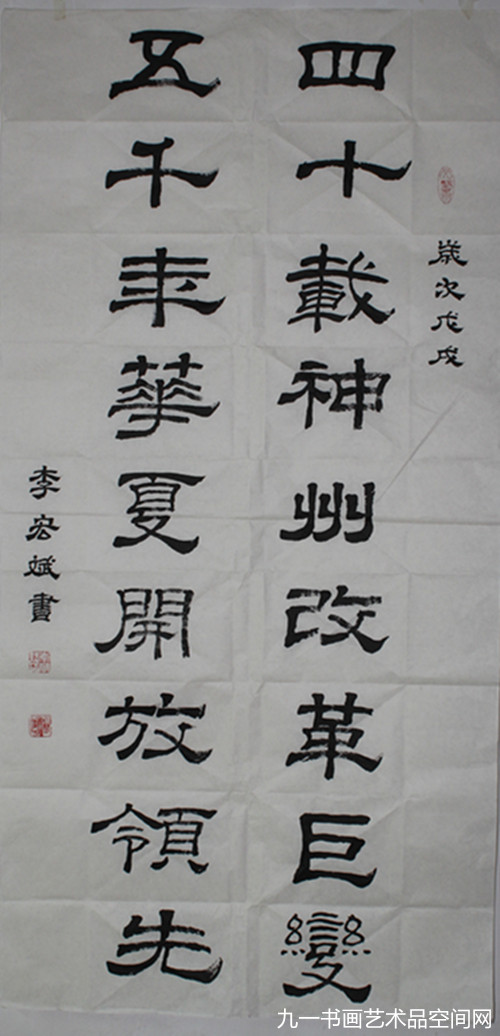 歲次戊戌
四十載神州改革巨變
五千年華夏開放領先
李宏斌書
九一书画艺术品空间网